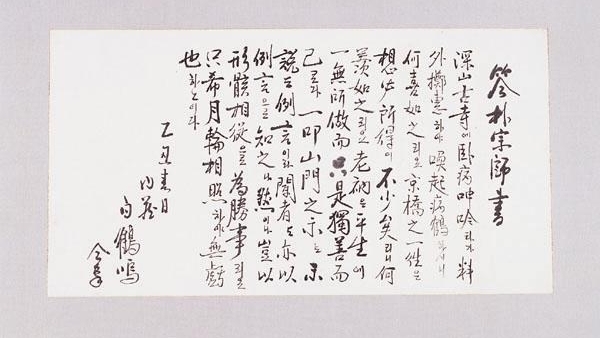 答朴宗師書
深山古寺에 卧病呻吟타가 料
外擲惠하야 喚起病鶴하시니
何喜如之리오 京橋之一往은
想必所得이 不少矣리니 何
羨如之리오 老衲은 平生에
一無所做而只是獨善而
已로다 一叩山門之示는
說도 例言이 聞者도 亦以
例言으로 知之 豈以
形骸相從으로 為勝事리요
只希月輪相照하야 無虧
也하노이다
乙丑春日
內藏
白鶴鳴